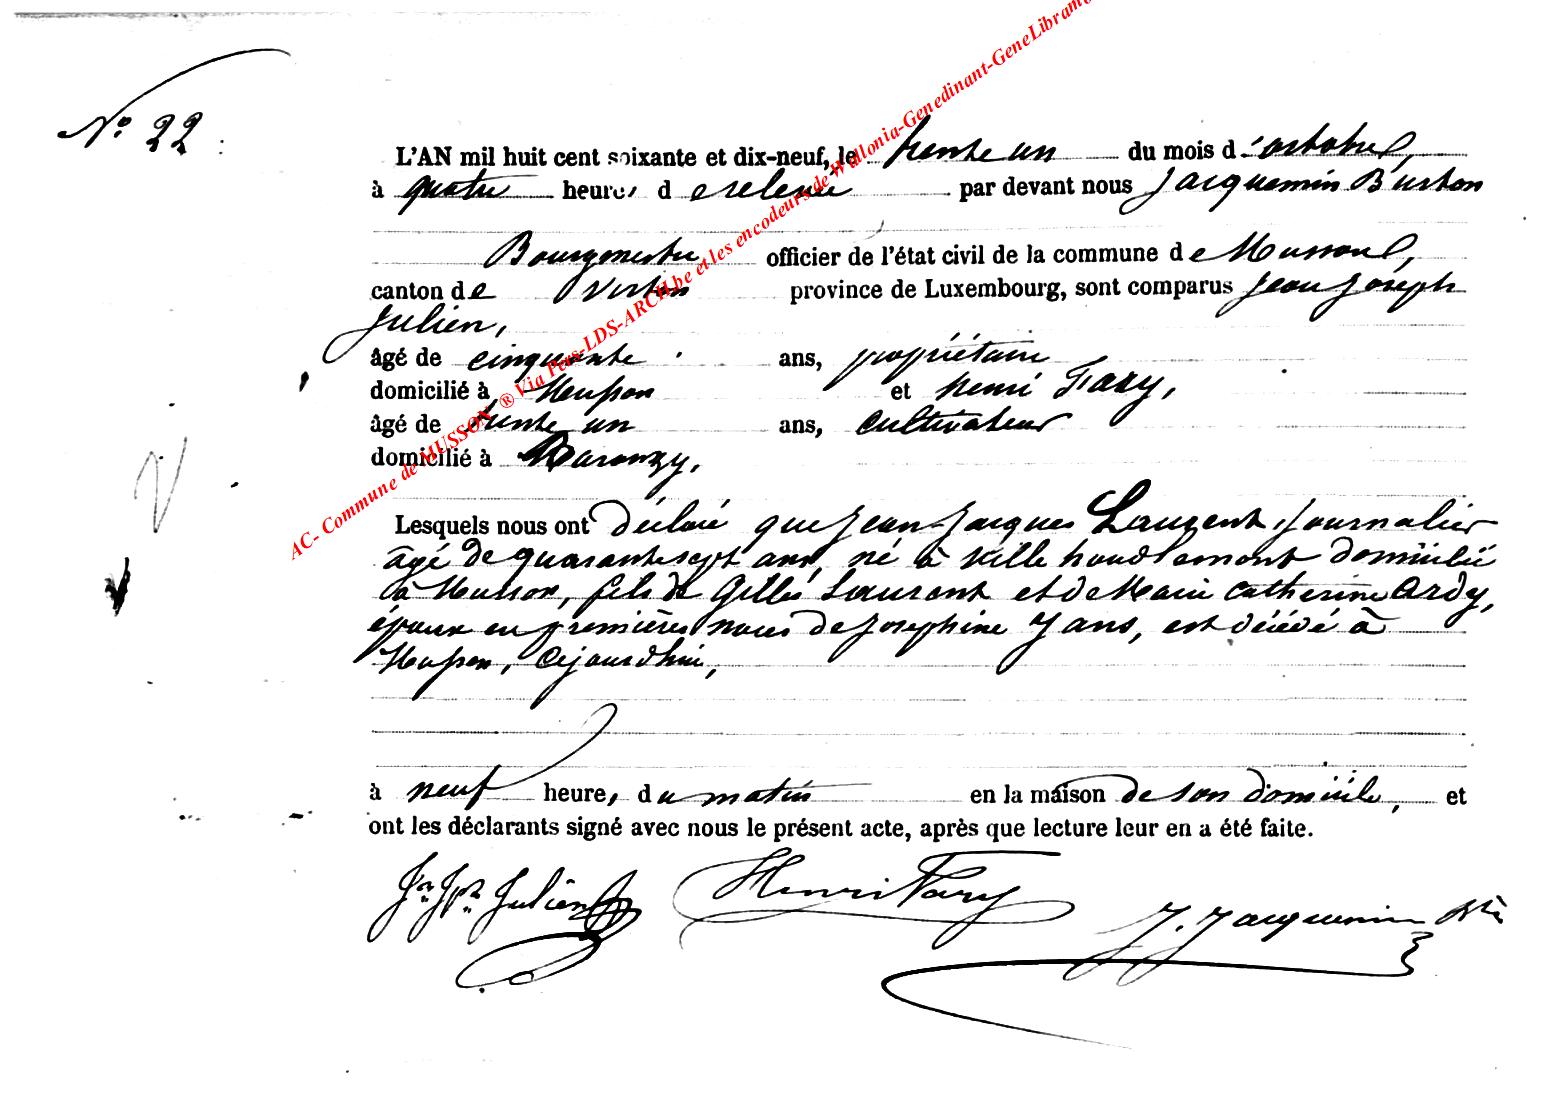 N° 22
L'AN mil huit cent soixante et dix-neuf, le trente un du mois d'octobre,
à quatre heures de relevée par devant nous Jacquemin Burton
Bourgmestre officier de l'état civil de la commune de Musson,
canton de Virton province de Luxembourg, sont comparus Jean Joseph
Julien,
âgé de cinquante ans, propriétaire
domicilié à Musson et Henri Fary,
âgé de trente un ans, cultivateur
domicilié à Baranzy,
Lesquels nous ont déclaré que Jean-Jacques Laurent, Journalier
âgé de quarante sept ans, né à Ville houdlemont domicilié
à Musson, fils de Gilles Laurent et de Marie Catherine Ardy,
époux en premières noces de Josephine Jans, est décédé à
Musson, cejourdhui,
à neuf heures du matin en la maison de son domicile, et
ont les déclarants signé avec nous le présent acte, après que lecture leur en a été faite.
Jn Jph Julien Henri Fary J. Jacquemin
AC- Commune de MUSSON ® Via Pers-LDS-ARCH.be et les encodeurs de Wallonia-Genedinant-GeneLibram